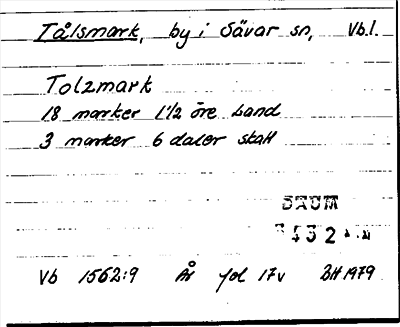 Tålsmark, by i Sävar sn, Vb.l.
Tolzmark
18 marker 1 1/2 öre Land
3 marker 6 daler skatt
DAUM
3432
Vb 1562:9 År fol 17v BH 1979